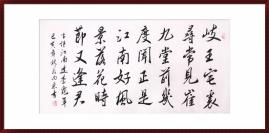 岐王宅裏
尋常見崔
九堂前幾
度聞正是
江南好風
景落花時
節又逢君
古诗江南逢李龟年